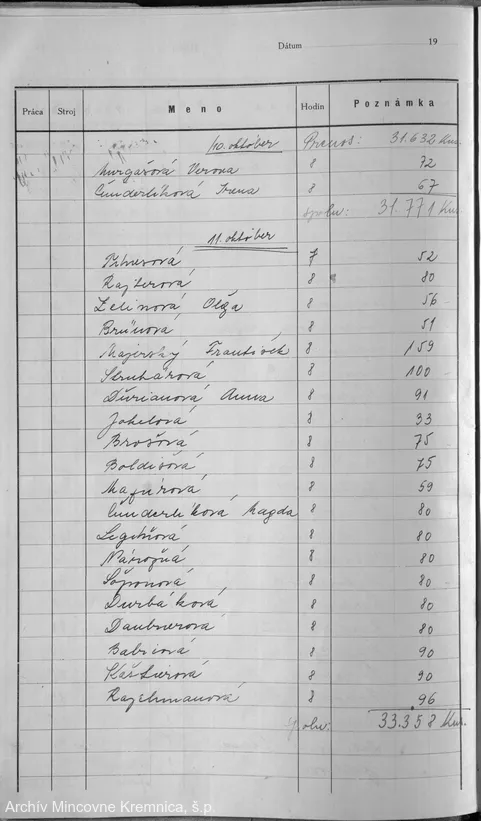 Dátum 19
Práca Stroj Meno Hodín Poznámka
10. október Prenos: 31.632 Kus.
Murgašová Verona 8 72
Čunderlíková Irena 8 67
Spolu: 31.771 Kus.
11. október
7 52
Rajterová 8 80
Zelinová Oľga 8 56
Brünová 8 51
Majerský František 8 159
Struhárová 8 100
Ďurianová Anna 8 91
Jokelová 8 33
Brošová 8 75
Boldišová 8 75
Mazúrová 8 59
Čunderlíková Magda 8 80
8 80
Nárožná 8 80
Šóponová 8 80
Durbáková 8 80
Daubnerová 8 80
Babicová 8 90
Kaštierová 8 90
Rajchmanová 8 96
Spolu: 33.358 Kus.
Archív Mincovne Kremnica, š.p.